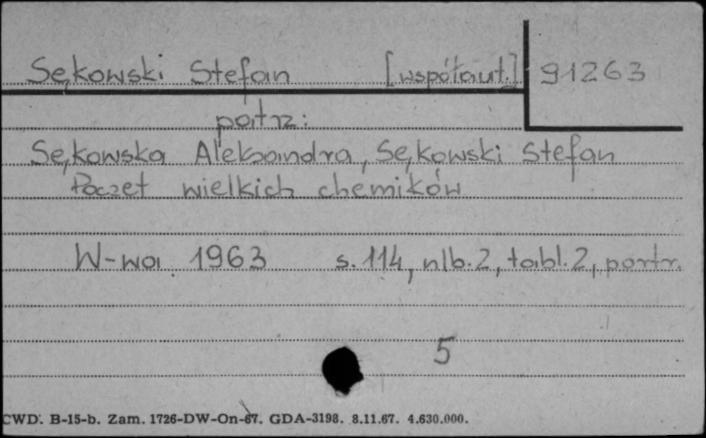 Sękowski Stefan [współaut.] 91263
patrz:
Sękowska Aleksandra, Sękowski Stefan
Poczet wielkich chemików
W-wa 1963 s. 114, nlb. 2, tabl. 2, portr.
5
CWD. B-15-b. Zam. 1726-DW-On-67. GDA-3198. 8.11.67. 4.630.000.